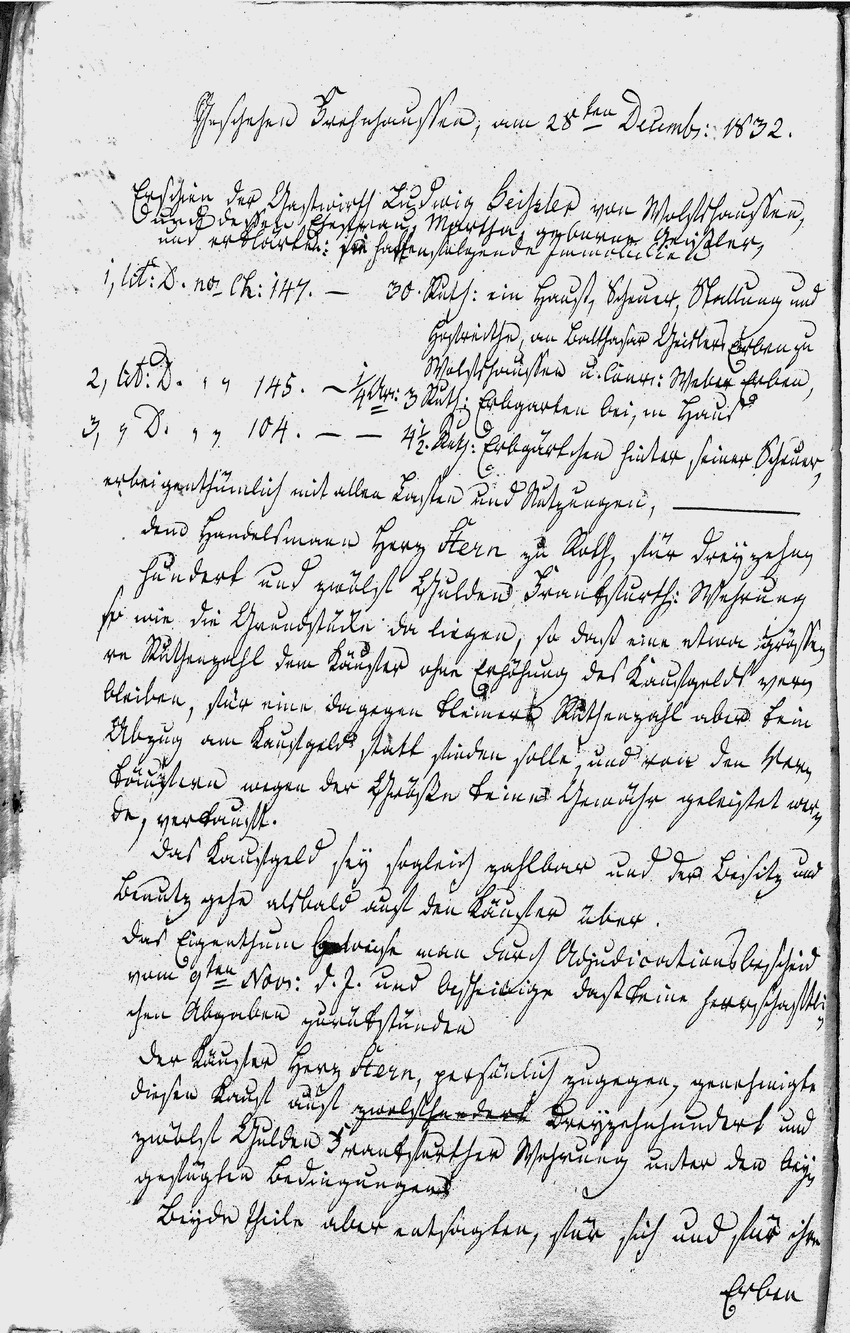 Geschehen Frohnhaussen, am 28ten Decemb: 1832.
Erschien der Gastwirth Ludwig Geißler von Wolfshaussen,
und dessen Ehefrau, Martha, geborne Geißler,
und erklärten: sie hätten folgende Immobilien
1, lit: D. no Ch: 147. — 30. Ruth: ein Hauß, Scheuer, Stallung und
Hofreithe, an Balthasar Geißlers Erben zu
Wolfshaussen u. Conr: Weber Erben,
2, lit: D. " " 145. — 1/4 Ar: 3 Ruth: Erbgarten beim Haus
3, " D. " " 104. — — 4 1/2. Ruth: Erbgärtchen hinter seiner Scheuer,
erbeigenthümlich mit allen Lasten und Nutzungen, ———
dem Handelsmann Herz Stern zu Roth, für dreyzehn
hundert und zwölf Gulden Frankfurth: Wehrung
so wie die Grundstücke da liegen, so daß eine etwa grössen
re Ruthenzahl dem Käufer ohne Erhöhung des Kaufgelds ver
bleiben, für eine dagegen kleinere Ruthenzahl aber kein
Abzug am Kaufgeld statt finden solle, und von den Ver
käufern wegen der Größe keine Gewähr geleistet wer
de, verkauft.
Das Kaufgeld sey sogleich zahlbar und der Besitz und
Benutz gehe alsbald auf den Käufer über.
Das Eigenthum beweise man durch Adjudicationsbescheid
vom 9ten Nov: d. J. und bescheinige daß keine herrschaftli
chen Abgaben zurückstünden
Der Käufer Herz Stern, persönlich zugegen, genehmigte
diesen Kauf auf zwölfhundert Dreyzehnhundert und
zwölf Gulden Frankfurther Wehrung unter den bey
gefügten Bedingungen
Beyde Theile aber entsagten, für sich und für ihre
Erben